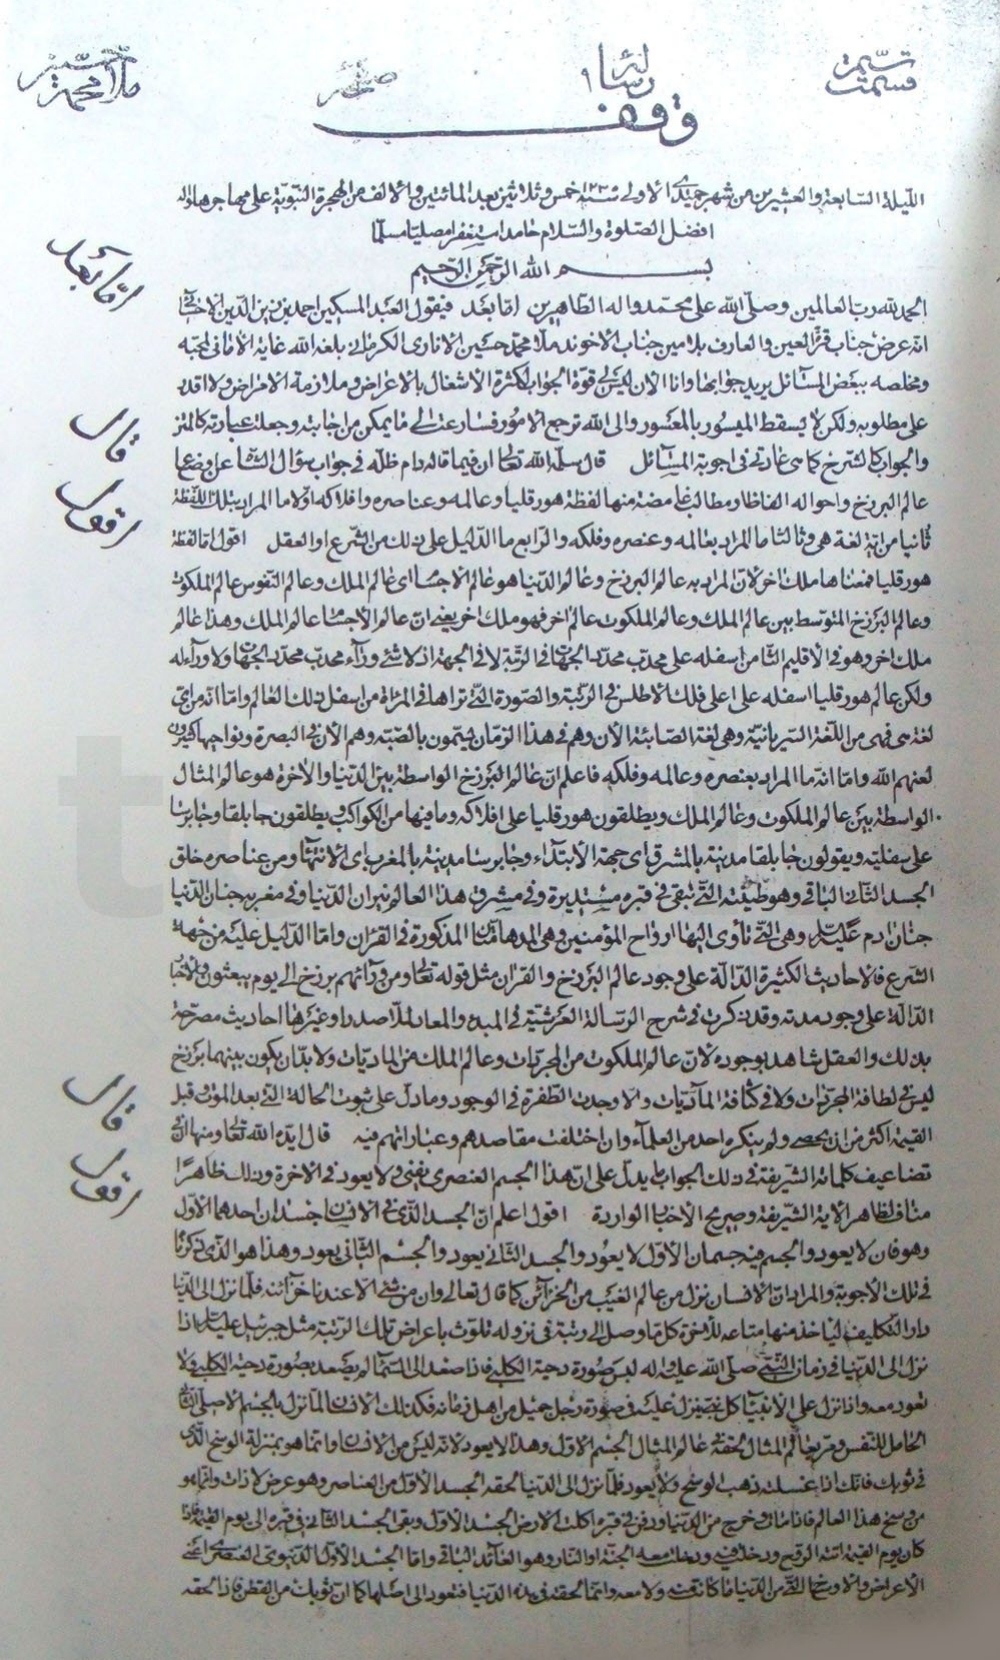 رسالة
وقف
الليلة السابعة والعشرين من شهر جميدى الاولى سنة ١٢٣ خمس وثلاثين بعد المائتين والالف من الهجرة النبوية على مهاجرها واله
افضل الصلوة والسلام حامدا مستغفرا مصليا مسلما
بسم الله الرحمن الرحيم
اما بعد
الحمد لله رب العالمين وصلى الله على محمد واله الطاهرين اما بعد فيقول العبد المسكين احمد بن زين الدين الاحسائى
انه عرض جناب قرة العين والعارف بلا مين جناب الاخوند ملا محمد حسين الانارى الكرمانى بلغه الله غاية الامانى لمحبه
ومخلصه ببعض المسائل يريد جوابها وانا الان ليس لى قوة الجواب لكثرة الاشغال بالاعراض وملازمة الامراض ولا اقدر
على مطلوبه ولكن لا يسقط الميسور بالمعسور والى الله ترجع الامور فسارعت الى ما يمكن من اجابته وجعلت عبارته كالمتن
قال
والجواب كالشرح كما هى عادتى فى اجوبة المسائل قال سلمه الله تعالى ان فيما قاله دام ظله فى جواب سؤال السائل عن وضع
عالم البرزخ واحواله الفاظا ومطالب غامضة منها لفظة هورقليا وعالمه وعناصره وافلاكه اولا ما المراد بتلك اللفظة
اقول
ثانيا من اية لغة هى وثالثا ما المراد بعالمه وعنصره وفلكه والرابع ما الدليل على ذلك من الشرع او العقل اقول اما لفظة
هورقليا فمعناها ملك اخر لان المراد به عالم البرزخ وعالم الدنيا هو عالم الاجسام اى عالم الملك وعالم النفوس عالم الملكوت
وعالم البرزخ المتوسط بين عالم الملك وعالم الملكوت عالم اخر فهو ملك اخر يعنى ان عالم الاجسام عالم الملك وهذا عالم
ملك اخر وهو فى الاقليم الثامن اسفله على محدب محدد الجهات فى الرتبة لا فى الجهة اذ لا شئ وراء محدب محدد الجهات ولا وراء له
ولكن عالم هورقليا اسفله على اعلى فلك الاطلس فى الرتبة والصورة التى تراها فى المرآة من اسفل ذلك العالم واما انه من اى
لغة هى فهى من اللغة السريانية وهى لغة الصابئة الان وهم فى هذا الزمان يسمون بالصبة وهم الان فى البصرة ونواحيها كثيرون
لعنهم الله واما انه ما المراد بعنصره وعالمه وفلكه فاعلم ان عالم البرزخ الواسطة بين الدنيا والاخرة هو عالم المثال
الواسطة بين عالم الملكوت وعالم الملك ويطلقون هورقليا على افلاكه وما فيها من الكواكب ويطلقون جابلقا وجابرسا
على سفليته ويقولون جابلقا مدينة بالمشرق اى جهة الابتداء وجابرسا مدينة بالمغرب اى الانتهاء ومن عناصره خلق
الجسد الثانى الباقى وهو طينته التى تبقى فى قبره مستديرة وفى مشرق هذا العالم نيران الدنيا وفى مغربه جنان الدنيا
جنان ادم عليه السلام وهى التى تأوى اليها ارواح المؤمنين وهى المدهامتان المذكورة فى القران واما الدليل عليه من جهة
الشرع فالاحاديث الكثيرة الدالة على وجود عالم البرزخ والقران مثل قوله تعالى ومن ورائهم برزخ الى يوم يبعثون والاخبار
الدالة على وجود مدنه وقد ذكرت فى شرح الرسالة العرشية فى المبدء والمعاد لملا صدرا وغيرها احاديث مصرحة
بذلك والعقل شاهد بوجوده لان عالم الملكوت من المجردات وعالم الملك من الماديات ولا بد ان يكون بينهما برزخ
قال
ليس فى لطافة المجردات ولا فى كثافة الماديات والا وجدت الطفرة فى الوجود وما دل على ثبوت الحالة التى بعد الموت وقبل
القيمة اكثر من ان يحصى ولم ينكره احد من العلماء وان اختلفت مقاصدهم وعباراتهم فيه قال ايده الله تعالى ومنها ان فى
تضاعيف كلماته الشريفة فى ذلك الجواب ما يدل على ان هذا الجسم العنصرى يفنى ولا يعود فى الاخرة وذلك ظاهرا
اقول
مناف لظاهر الاية الشريفة وصريح الاخبار الواردة اقول اعلم ان الجسد الذى فى الانسان جسدان احدهما الاول
وهو فان لا يعود والجسم فيه جسمان الاول لا يعود والجسد الثانى يعود والجسم الثانى يعود وهذا هو الذى ذكرنا
فى تلك الاجوبة والمراد ان الانسان نزل من عالم الغيب من الخزائن كما قال تعالى وان من شئ الا عندنا خزائنه فلما نزل الى الدنيا
دار التكليف ليأخذ منها متاعه للاخرة كلما وصل الى رتبة فى نزوله تلوث باعراض تلك الرتبة مثل جبرئيل عليه السلام اذا
نزل الى الدنيا فى زمان النبى صلى الله عليه واله لبس صورة دحية الكلبى فاذا صعد الى السماء لم يصعد بصورة دحية الكلبى ولا
تعود معه واذا نزل على الانبياء كل نبى ينزل عليه فى صورة رجل جميل من اهل زمانه فكذلك الانسان لما نزل بالجسم الاصلى الثانى
الحامل للنفس ومر بعالم المثال لحقه عالم المثال الجسم الاول وهذا لا يعود لانه ليس من الانسان وانما هو بمنزلة الوسخ الذى
فى ثوبك فانك اذا غسلته ذهب الوسخ ولا يعود فلما نزل الى الدنيا لحقه الجسد الاول من العناصر وهو عرض لا ذات وانما هو
من سنخ هذا العالم فاذا مات وخرج من الدنيا ودفن فى قبره اكلت الارض الجسد الاول وبقى الجسد الثانى فى قبره الى يوم القيمة فاذا
كان يوم القيمة اتته الروح ودخلت فيه ودخلت معه الجنة او النار وهو العائد الباقى واما الجسد الاول الدنيوى العنصرى اعنى
الاعراض والاوساخ التى من الدنيا فما كانت منه ولا معه وانما لحقته فى هذه الدنيا فتعود الى اصلها كما ان ثوبك من القطن فاذا لحقه